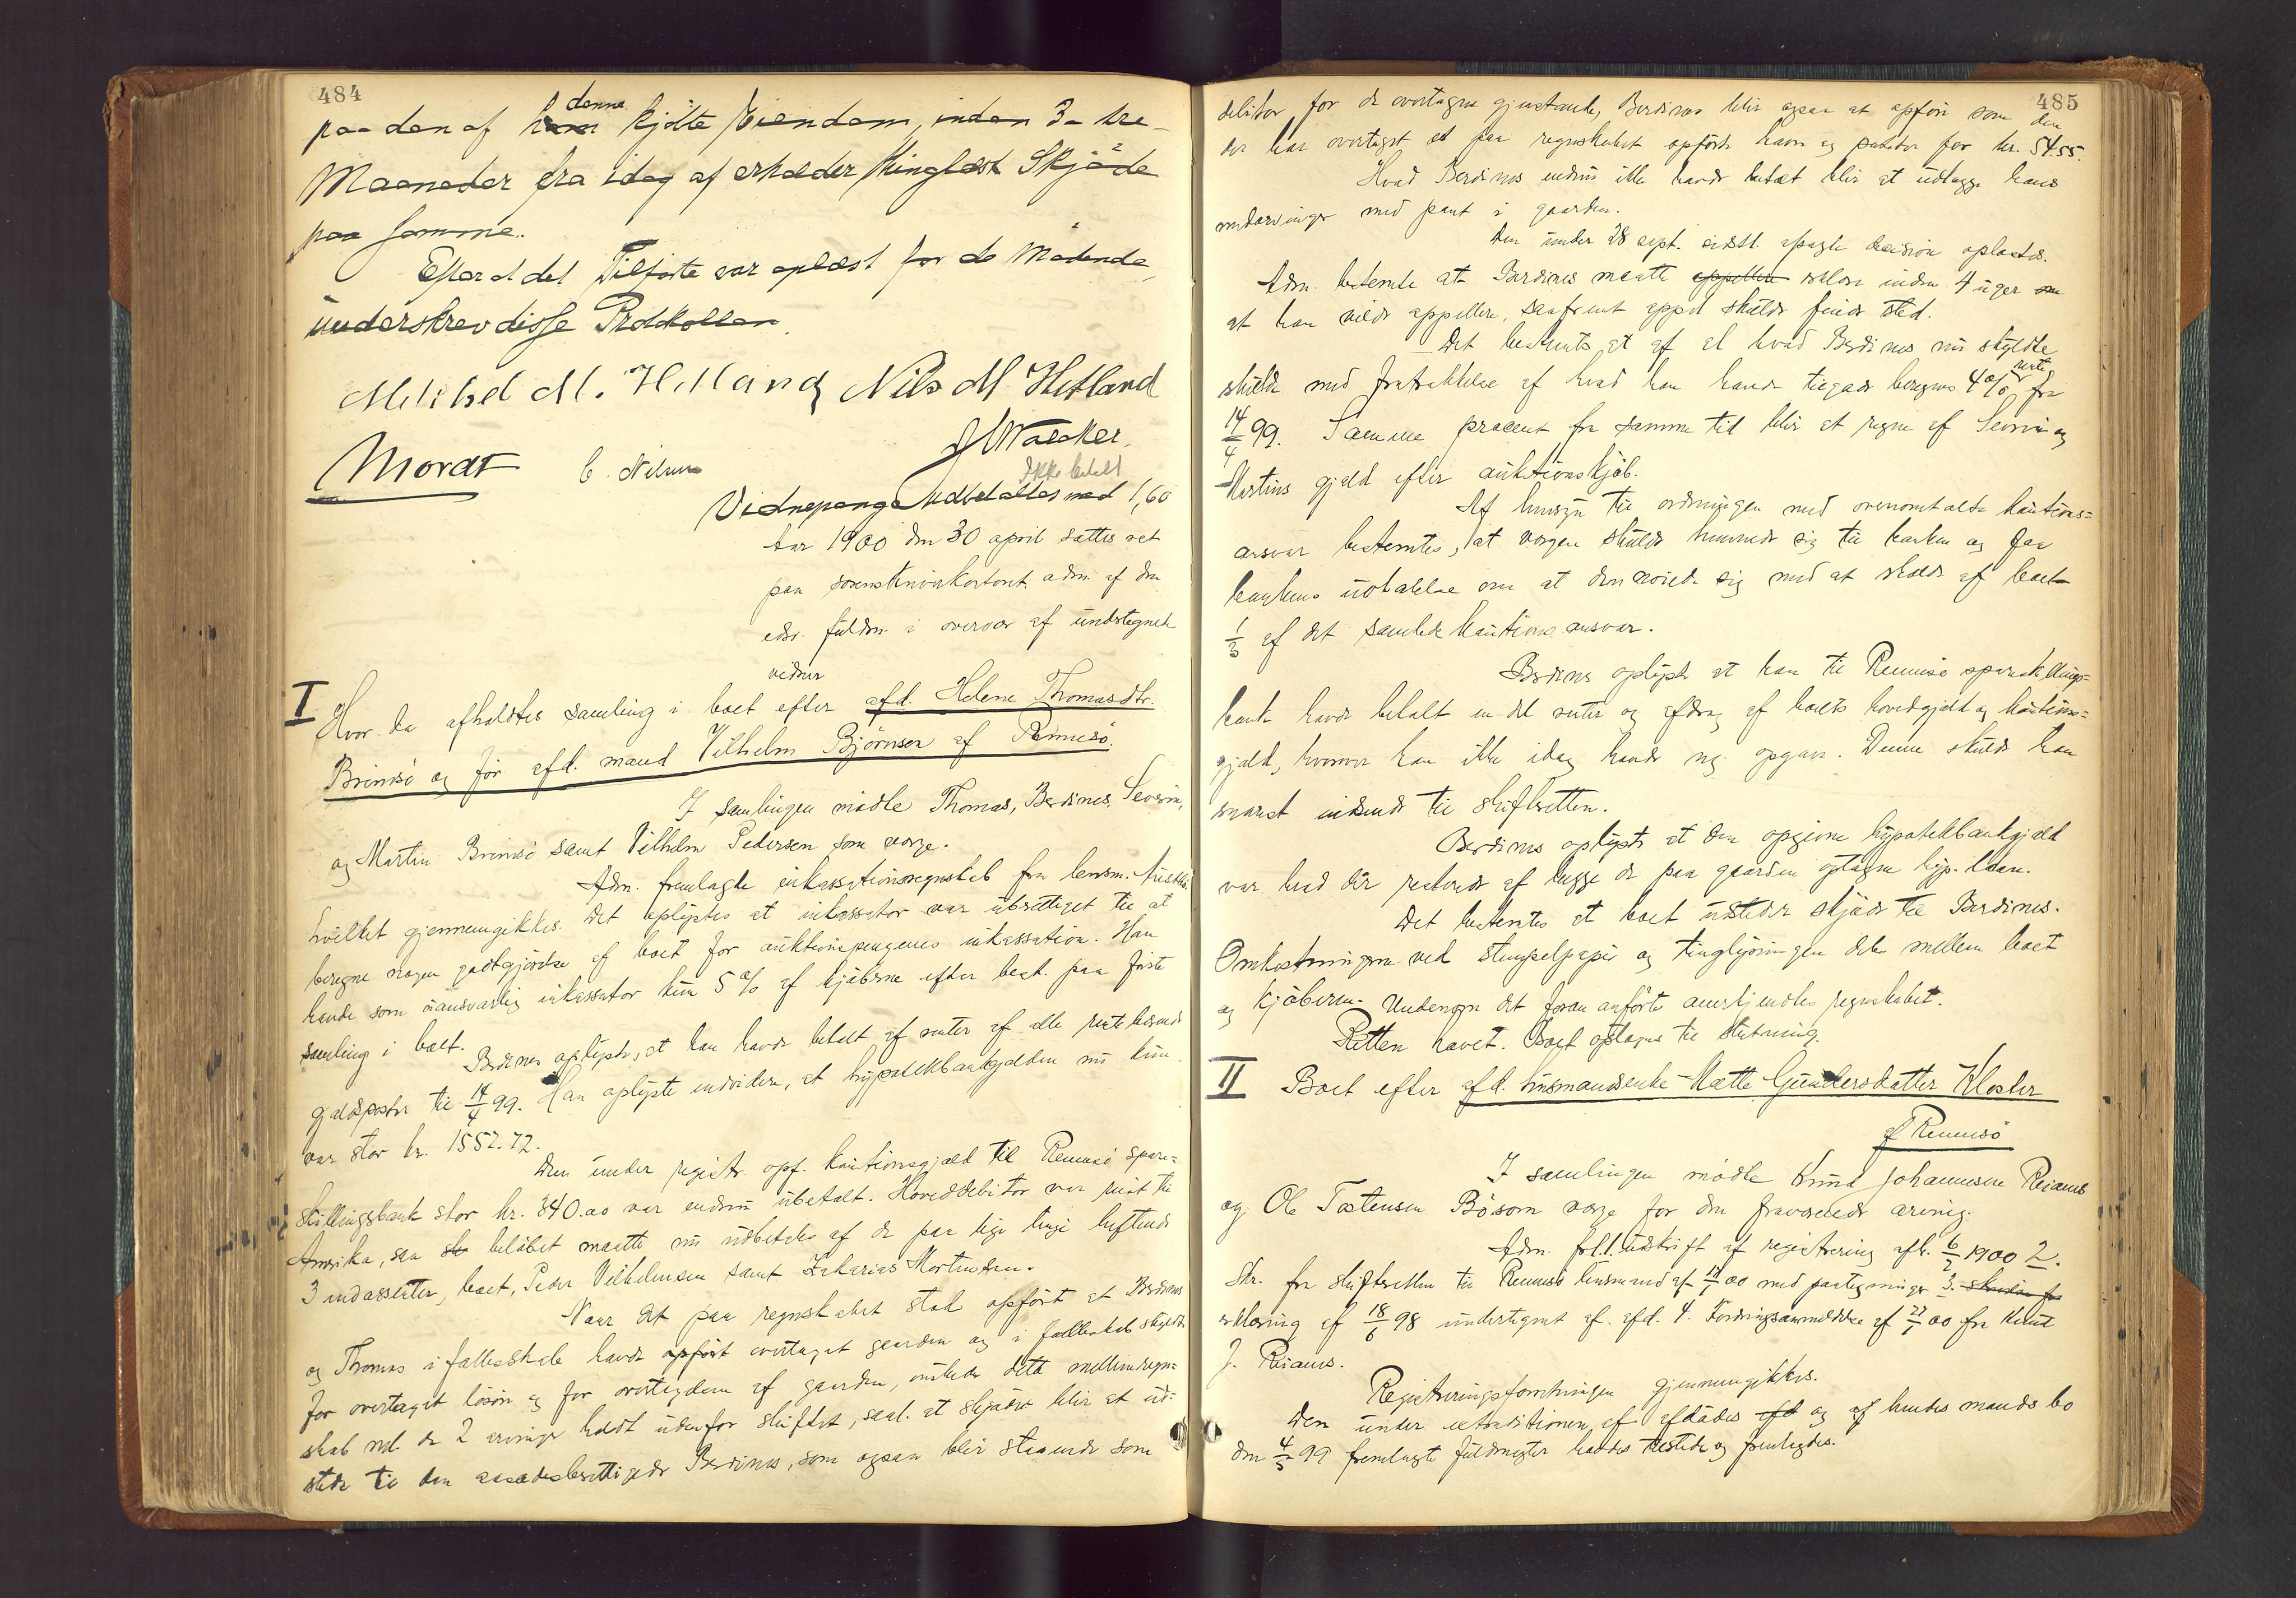 484
paa den af denne kjøbte Eiendom, inden 3 - tre -
Maaneder fra idag af erholder thinglæst Skjøde
paa samme.
Efterat det Tilførte var oplæst for de Mødende,
underskrev disse Protokollen.
Mikkel M. Hetland, Nils M Hetland
J Waecker
Mordt C. Nilsen
Ikke betalt
Vidnepenge udbetaltes med 1,60
Aar 1900 den 30 april sattes ret
paa sorenskriverkontoret adm. af den
edsv. fuldm. i overvær af undertegnede
vidner
I Hvor da afholdtes samling i boet efter afd. Helene Thomasdtr.
Brimsø og før afd. mand Vilhelm Bjørnsen af Rennesø.
I samlingen mødte Thomas, Berdines, Severin,
og Martin Brimsø samt Vilhelm Pedersen som værge.
Adm. fremlagte inkassationsregnskab fra lensm.
hvilket gjennemgikkes. Det oplystes at inkassator var uberettiget til at
beregne nogen godtgjørelse af boet for auktionspengenes inkassation. Han
havde som uansvarlig inkassator kun 5 % af kjøberne efter best. paa første
samling i boet.
Berdines oplyste, at han havde betalt af renter af alle rentebærende
gjældsposter til 14/4 99. Han oplyste endvidere, at hypothekbankgjælden nu kun
var stor kr. 1552.72.
Den under registr. opf. kautionsgjæld til Rennesø spare-
skillingsbank stor kr. 340.00 var endnu ubetalt. Hoveddebitor var reist til
Amerika, saa beløbet maatte nu udbetales af de paa lige linje heftende
3 indossenter, boet, Peder Vilhelmsen samt Zakarias Mortensen.
Naar det paa regnskabet stod opført at Berdines
og Thomas i fællesskab havde opført overtaget gaarden og i fællesskab skyldte
for overtaget løsøre og for overtagelsen af gaarden, ønskede dette mellemregn-
skab ml. de 2 arvinger holdt udenfor skiftet, saal. at skjøde blir at ud-
stede til den aasædesberettigede Berdines, som ogsaa blir staaende som
485
debitor for de overtagne gjenstande, Berdines blir ogsaa at opføre som den
der har overtaget et paa regnskabet opført havn og poteter for kr. 54.55.
Hvad Berdines endnu ikke havde betalt blir at udlægge hans
medarvinger med pant i gaarden.
Den under 28 sept. sidstl. afsagte decision oplæstes.
Adm. bestemte at Berdines maatte erklære inden 4 uger
at han vilde appellere, saafremt appel skulde finde sted.
Det bestemtes at af al hvad Berdines nu skyldte
skulde med fratrækkelse af hvad han havde tilgode beregnes 4% rente fra
14/4 99. Samme procent fra samme tid blir at regne af Severin og
Martins gjæld efter auktionskjøb.
Af hensyn til ordningen med ovenomtalte kautions-
ansvar bestemtes, at værgen skulde henvende sig til banken og faa
bankens udtalelse om at den nøiede sig med at erholde af boet
1/3 af det samlede kautionsansvar.
Berdines oplyste at han til Rennesø spareskillings-
bank havde betalt en del renter og afdrag af boets hovedgjæld og kautions-
gjæld, hvorover han ikke idag havde nøi. opgave. Denne skulde han
snarest indsende til skifteretten.
Berdines oplyste at den opgivne hypothekbankgjæld
var hvad der resterede af begge de paa gaarden optagne hyp. laan.
Det bestemtes at boet udsteder skjøde til Berdines.
Omkostningerne ved stempelpapir og tinglysningen deles mellem boet
og kjøberen. Undtagen det foran anførte anerkjendtes regnskabet.
Retten hævet. Boet optages til slutning.
II Boet efter afd. husmandsenke Mette Gundersdatter Kloster
af Rennesø
I samlingen mødte Knud Johannesen Reianes
og Ole Tostensen Bøsom værge for den fraværende arving.
Adm. frl. 1. udskrift af registrering afh. 6/2 1900 2.
Skr. fra skifteretten til Rennesø lensmand af 17/1 00 med paategninger 3.
erklæring af 18/6 98 undertegnet af afd. 4. Fordringsanmeldelse af 27/1 00 fra Knud
J. Reianes.
Registreringsforretningen gjennemgikkes.
Den under extraditionen af afdødes og af hendes mands bo
den 4/5 99 fremlagte fuldmagter havdes tilstede og fremlagdes.